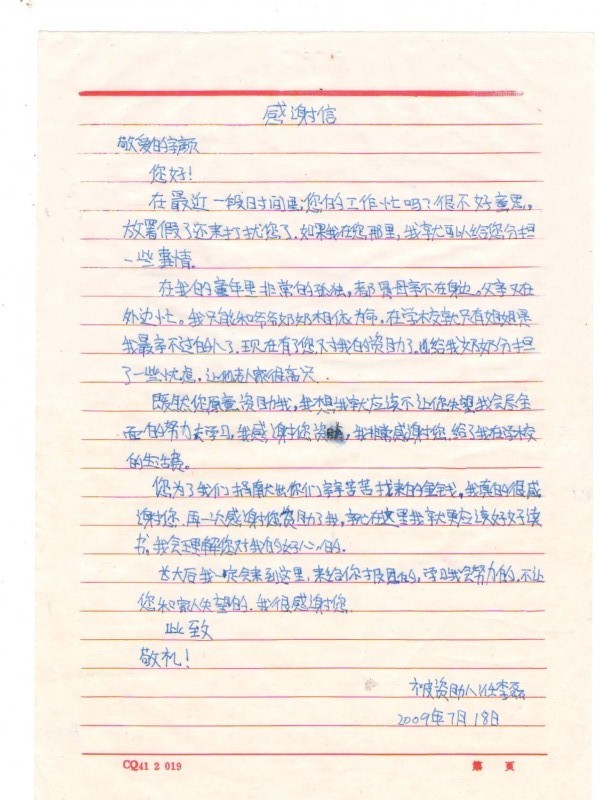 感谢信
敬爱的宇颜
您好!
在最近一段时间里,您的工作忙吗?很不好意思,
放署假了还来打扰您了。如果我在您那里,我就可以给您分担
一些事情。
在我的童年里非常的孤独,都是母亲不在身边。父亲又在
外边忙。我只能和爷爷奶奶相依为命,在学校就只有姐姐是
我最亲不过的人了。现在有了您对我的资助了,给我奶奶分担
了一些忧虑,让他老人家很高兴。
既然您愿意资助我,我想我就应该不让您失望我会尽全
面的努力去学习,我感谢您资助,我非常感谢您,给了我在学校
的生活费。
您为了我们捐献出你们辛辛苦苦找来的金钱,我真的很感
谢您,再一次感谢您资助了我,就在这里我就更应该好好读
书,我会理解您对我的好心的。
长大后我一定会来到这里,来给你报恩的,学习我会努力的,不让
您和家人失望的。我很感谢您
此致
敬礼!
被资助人任李磊
2009年7月18日
CQ41 2 019 第 页